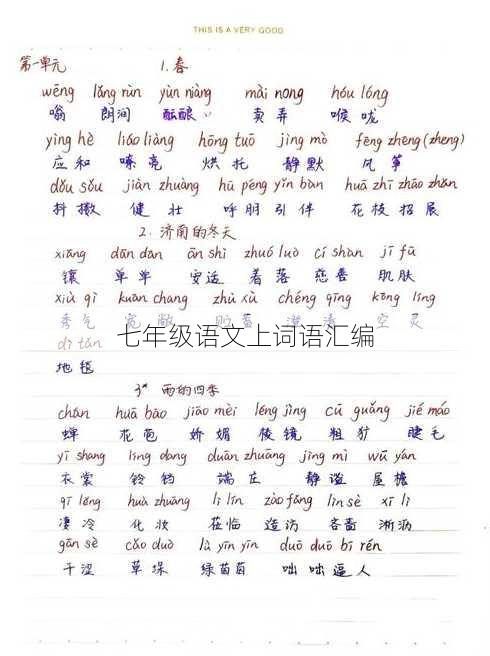 THIS IS A VERY GOOD
第一单元 1.春
wēng lǎng rùn yùn niàng mài nong hóu lóng
嗡 朗润 酝酿 卖弄 喉咙
yìng hè liáo liàng hōng tuō jìng mò fēng zheng (zheng)
应和 嘹亮 烘托 静默 风筝
dǒu sǒu jiàn zhuàng hū péng yǐn bàn huā zhī zhāo zhǎn
抖擞 健壮 呼朋引伴 花枝招展
2.济南的冬天
xiāng dān dān ān shì zhuó luò cí shàn jī fū
镶 单单 安适 着落 慈善 肌肤
xiù qì kuān chang zhù xù chéng qīng kōng líng
秀气 宽敞 贮蓄 澄清 空灵
七年级语文上词语汇编
dì tǎn
地毯
3* 雨的四季
chán huā bāo jiāo mèi léng jìng cū guǎng jié máo
蝉 花苞 娇媚 棱镜 粗犷 睫毛
yī shang líng dang duān zhuāng jìng mì wū yán
衣裳 铃铛 端庄 静谧 屋檐
qī lěng huà zhuāng lì lín zào fǎng lìn sè xī lì
凄冷 化妆 莅临 造访 吝啬 淅沥
gān sè cǎo duò lǜ yīn yīn duō duō bī rén
干涩 草垛 绿茵茵 咄咄逼人